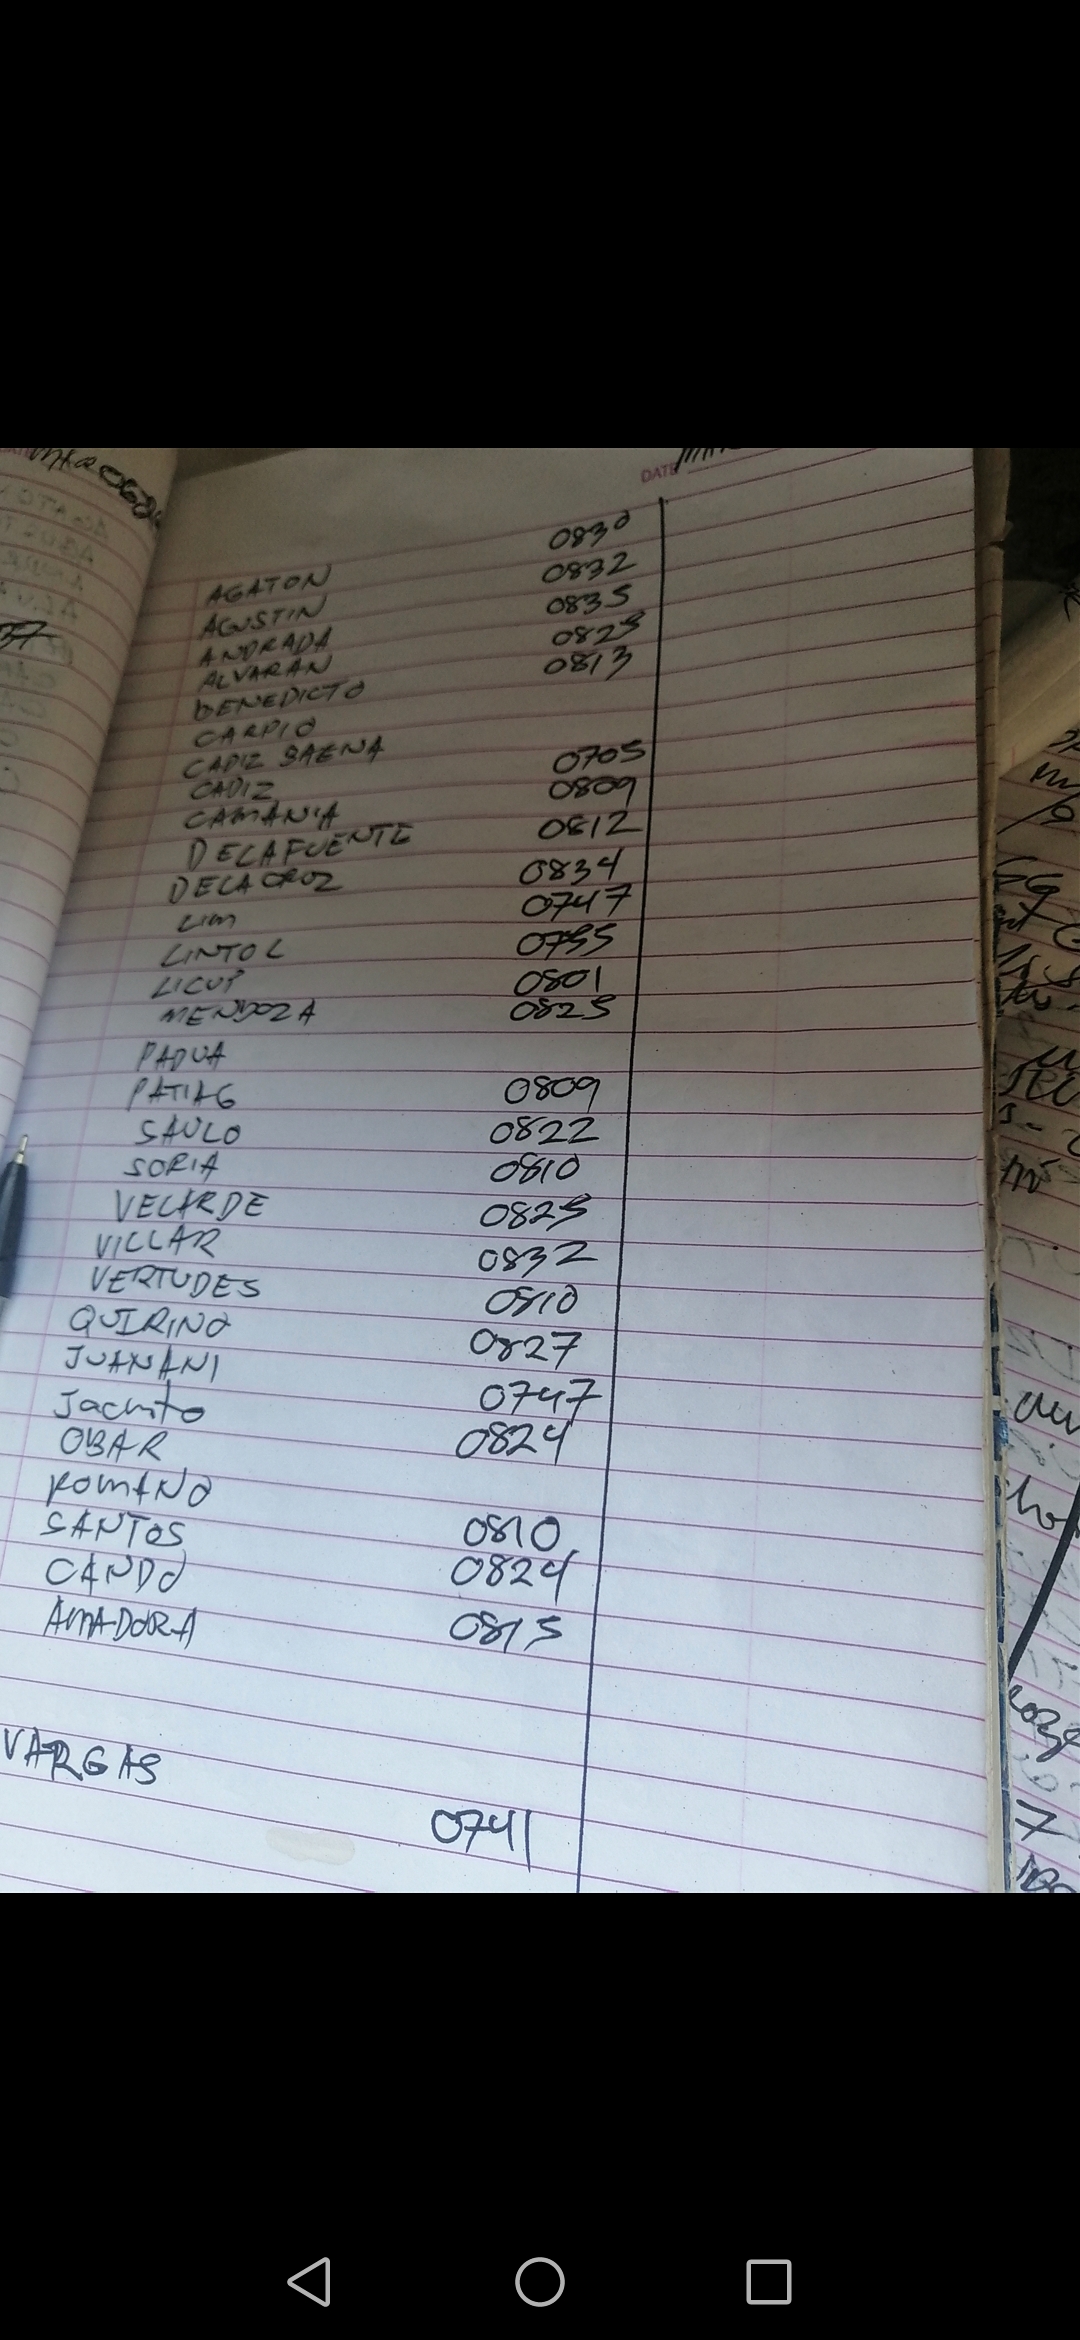 MAR 062
DATE
AGATON 0830
AGUSTIN 0832
ANDRADA 0835
ALVARAN 0825
BENEDICTO 0813
CARPIO
CADIZ BAENA
CADIZ 0705
CAMANIA 0809
DELAFUENTE 0812
DELACRUZ 0834
LIM 0747
LINTOL 0755
LICUP 0801
MENDOZA 0825
PADUA
PATIAG 0809
SAULO 0822
SORIA 0810
VELARDE 0825
VILLAR 0832
VERTUDES 0810
QUIRINO 0827
JUANANI 0747
Jacinto 0824
OBAR
ROMANO 0810
SANTOS 0824
CANDO 0815
AMADORA
VARGAS 0741